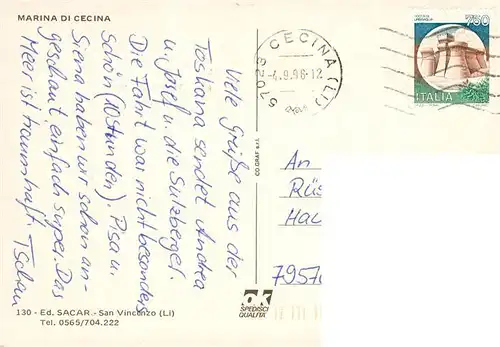 MARINA DI CECINA
Viele Grüße aus der
Toskana sendet Andrea
u. Josef u. die Sulzberger.
Die Fahrt war nicht besonders
schön (10 Stunden). Pisa u.
Siena haben wir schon an-
geschaut, einfach super. Das
Meer ist traumhaft. Tschau
130 - Ed. SACAR - San Vincenzo (Li)
Tel. 0565/704.222
CO.GRAF s.r.l.
ak
SPEDISCI
QUALITÀ
57023 CECINA (LI)
-4.9.96-12
750
ITALIA
An
Rüs
Hau
7957